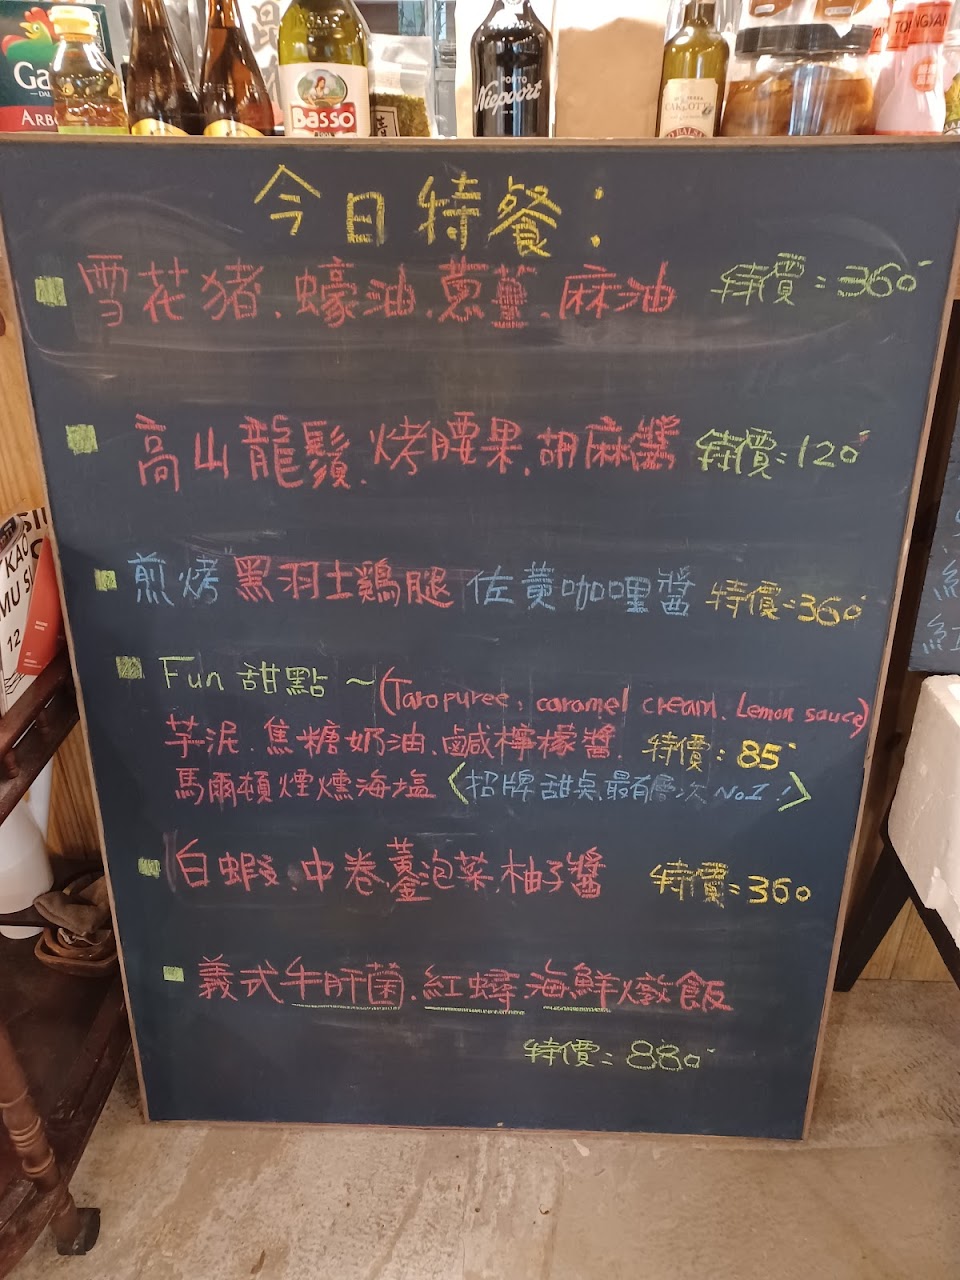 Ga
ARBO
Basso
PORTO
Niepoort
今日特餐：
雪花猪、蠔油、蔥薑、麻油 特價：360
高山龍鬚、烤腰果、胡麻醬 特價：120
煎烤黑羽土鷄腿 佐黃咖哩醬 特價：360
Fun 甜點 ~ (Taro puree, caramel cream, Lemon sauce)
芋泥、焦糖奶油、鹹檸檬醬 特價：85
馬爾頓煙燻海塩 <招牌甜桌、最有層次 No1！>
白蝦、中卷、黃金泡菜、柚子醬 特價：360
義式牛肝菌、紅蟳海鮮燉飯
特價：880
12